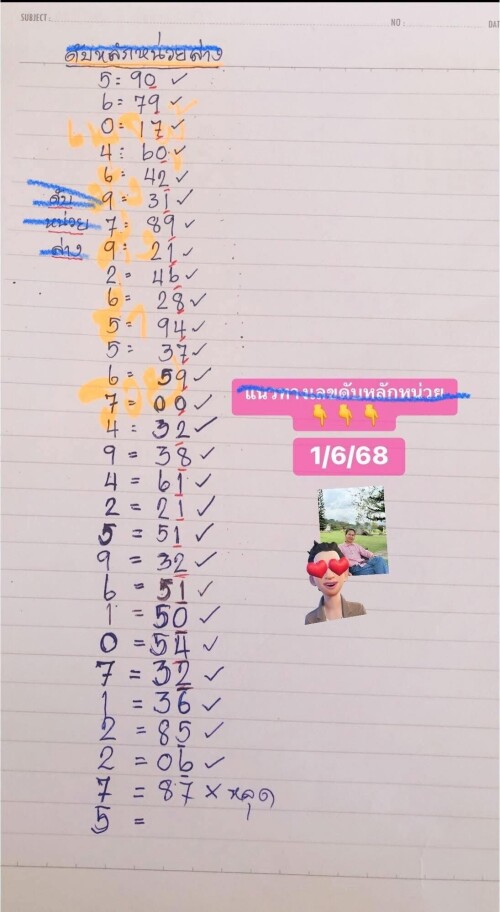 SUBJECT :
NO :
DAT
ดับหลักหน่วยล่าง
5 = 90 ✓
6 = 79 ✓
0 = 17 ✓
4 = 60 ✓
6 = 42 ✓
ดับ
9 = 31 ✓
หน่วย
7 = 89 ✓
ล่าง
9 = 21 ✓
2 = 46 ✓
6 = 28 ✓
5 = 94 ✓
5 = 37 ✓
6 = 59 ✓
7 = 00 ✓
แนวทางเลขดับหลักหน่วย
👇👇👇
4 = 32 ✓
9 = 38 ✓
1/6/68
4 = 61 ✓
2 = 21 ✓
5 = 51 ✓
9 = 32 ✓
6 = 51 ✓
1 = 50 ✓
0 = 54 ✓
7 = 32 ✓
1 = 36 ✓
2 = 85 ✓
2 = 06 ✓
7 = 87 × หลุด
5 =